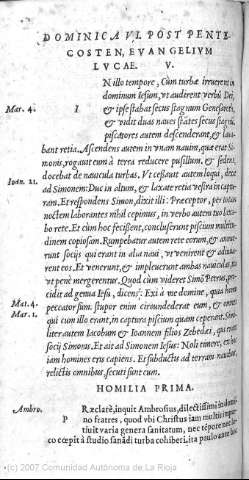 DOMINICA VI. POST PENTE
COSTEN, EVANGELIVM
LVCAE. V.
N illo tempore, Cum turbæ irruerent in
dominum Iesum, vt audirent verbũ Dei,
Mar. 4. I & ipse stabat secus stagnum Genesareth,
& vidit duas naues stãtes secus stagnũ,
piscatores autem descenderant, & laua
bant retia. Ascendens autem in vnam nauim, quæ erat Si
monis, rogauit eum à terra reducere pusillum, & sedens,
Ioan. 21. docebat de nauicula turbas. Vt cessauit autem loqui, dixit
ad Simonem: Duc in altum, & laxate retia vestra in captu
ram. Et respondens Simon, dixit illi: Præceptor, per totam
noctem laborantes nihil cepimus, in verbo autem tuo laxa
bo rete. Et cùm hoc fecissent, concluserunt pisciũ multitu
dinem copiosam. Rumpebatur autem rete eorum, & annue
runt socijs qui erant in alia naui, vt venirent & adiuua
rent eos. Et venerunt, & impleuerunt ambas nauiculas, ita
vt penè mergerentur. Quod cùm videret Simõ Petrus, pro
cidit ad genua Iesu, dicens: Exi à me domine, quia homo
Mat. 4. peccator sum. stupor enim circundederat eum, & omnes
Mar. 1. qui cum illo erant, in captura pisciũ quam ceperant. Simi
liter autem Iacobum & Ioannem filios Zebedæi, qui erant
socij Simonis, Et ait ad Simonem Iesus: Noli timere, ex hoc
iam homines eris capiens. Et subductis ad terram nauibus,
relictis omnibus, secuti sunt eum.
HOMILIA PRIMA.
Ambro. Ræclarè, inquit Ambrosius, dilectissimi in domino
P fratres, quod vbi Christus iam multis
tiuit varia genera sanitatum, nec tẽpore nec lo
co cœpit à studio sanãdi turba cohiberi,
(c) 2007 Comunidad Autónoma de La Rioja